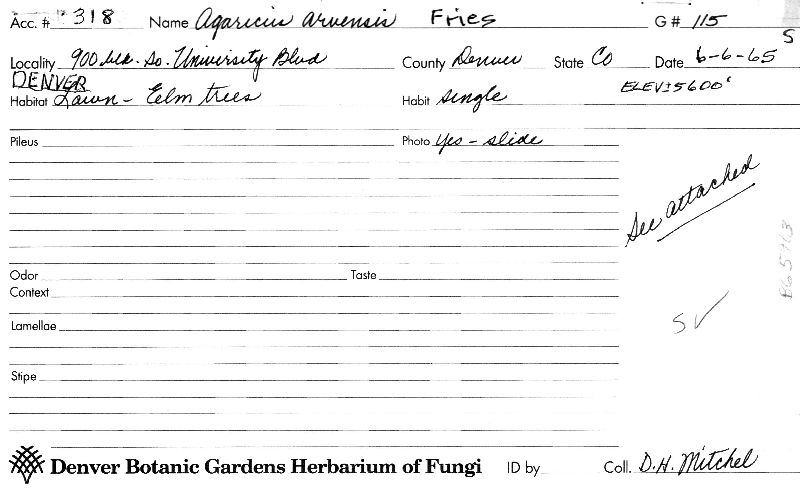 Acc. # 318 Name Agaricus arvensis Fries G# 115
S
Locality 900 blk. So. University Blvd County Denver State Co Date 6-6-65
DENVER
Habitat Lawn - Eelm trees Habit single ELEV: 5600'
Pileus Photo Yes - slide
See attached
Odor Taste
Context
B65963
Lamellae
S ✓
Stipe
Denver Botanic Gardens Herbarium of Fungi ID by Coll. D.H. Mitchel